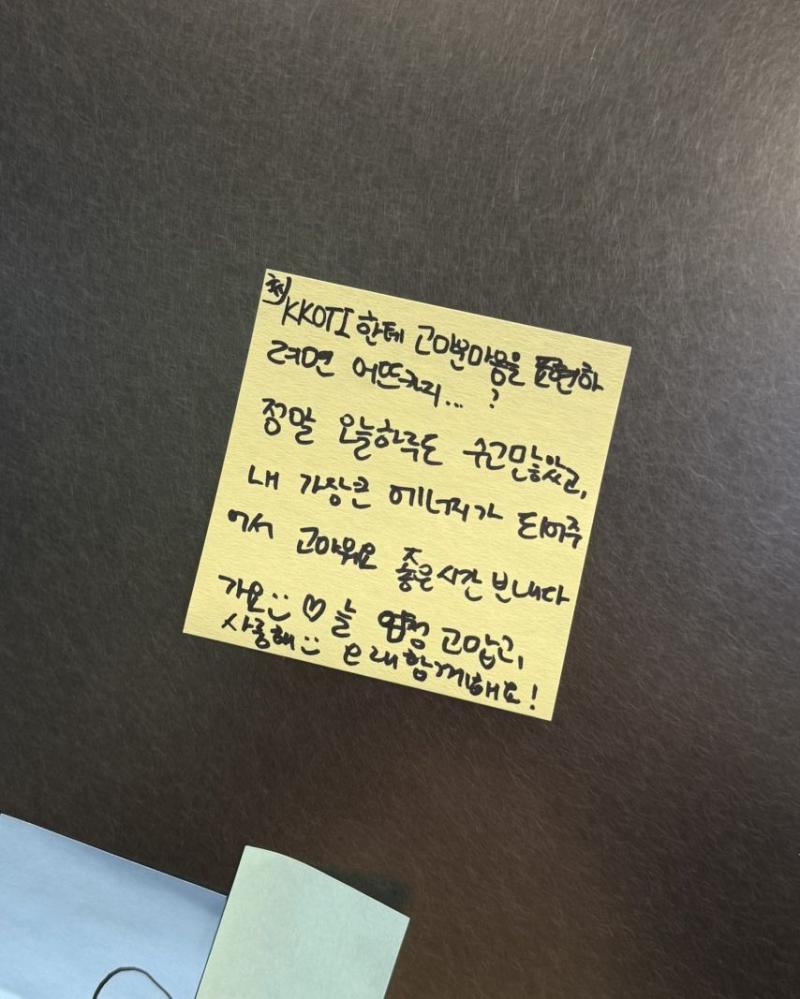 KKOTI 한테 고마운마음을 표현하
려면 어뜨카지... ?
정말 오늘하루도 수고많았고,
내 가장큰 에너지가 되어주
어서 고마워요 좋은시간 보내다
가요 ♡ 늘 엄청 고맙고,
사랑해 오래 함께해요!